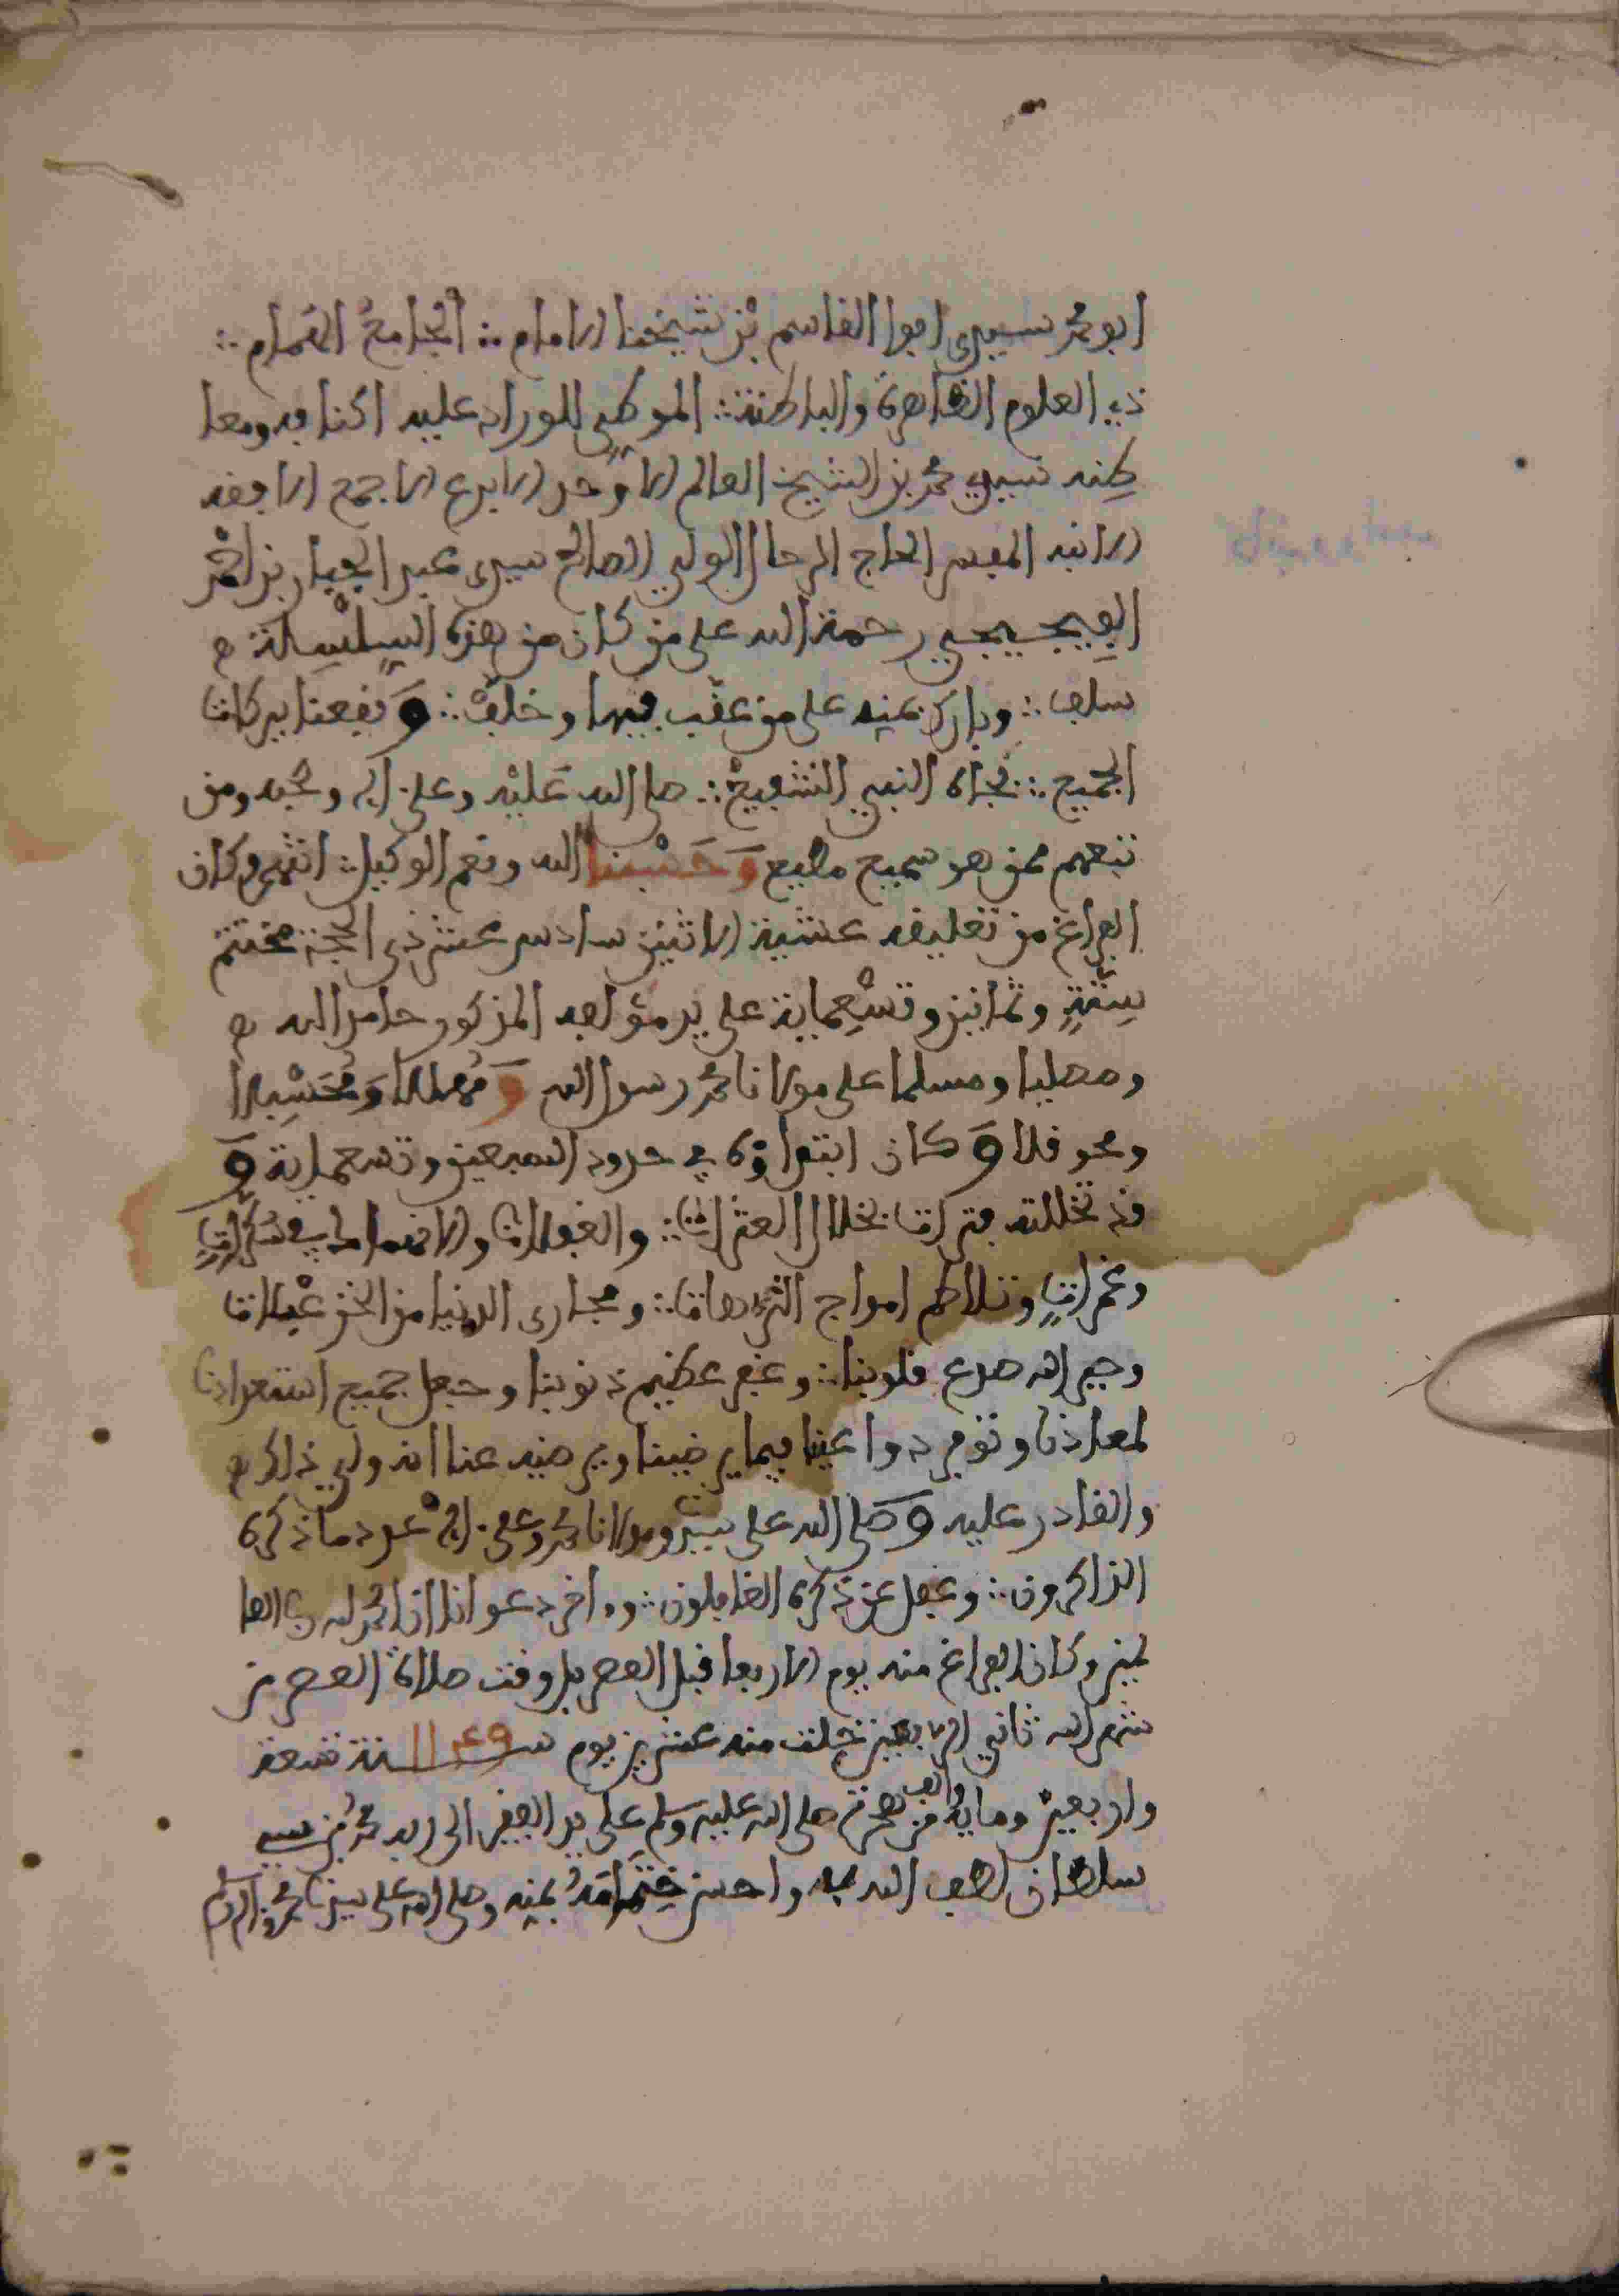 ابو محمد سيدي ابوا القاسم بن شيخنا الامام ∴ الجامع الهمام ∴
ذي العلوم الظاهرة والباطنة ∴ الموطي للوراد عليه اكنافه ومعا
طنه سيدي محمد بن الشيخ العالم الاوحد الابرع الاجمع الافقه
الانبه المفسر الحاج الرحال الولي الصالح سيدي عبد الجبار بن احمد
الفجيجي رحمة الله على من كان من هذه السلسلة
سلف ∴ وبارك بمنه على من عقب فيها وخلف ∴ ونفعنا ببركات
الجميع ∴ بجاه النبي الشفيع ∴ صلى الله عليه وعلى اله وصحبه ومن
تبعهم ممن هو سميع مطيع وحسبنا الله ونعم الوكيل ∴ انتهى وكان
الفراغ من تعليقه عشية الاثنين سادس عشر ذي الحجة مختتم
ستة وثمانين وتسعماية على يد مؤلفه المذكور حامدا لله
ومصليا ومسلما على مولانا محمد رسول الله ومهللا ومحسبلا
ومحوقلا وكان ابتداؤه في حدود السبعين وتسعماية و
قد تخللته فترات بخلال العثرات ∴ والغفلات والانهماك في سكرات
وغمرات وتلاطم امواج الترهات ∴ ومجارى الدنيا من الخزعبلات
وجبر الله صدع قلوبنا ∴ وغفر عظيم ذنوبنا وجعل جميع استعدادنا
لمعادنا وتوفر دواعينا فيما يرضينا ويرضيه عنا انه ولي ذلك
والقادر عليه وصلى الله على سيدنا ومولانا محمد وعلى اله عدد ما ذكره
الذاكرون ∴ وغفل عن ذكره الغافلون ∴ وءاخر دعوانا ان الحمد لله رب العا
لمين وكان الفراغ منه يوم الاربعا قبل العصر بل وقت صلاة العصر من
شهر الله ثاني الربيعين خلت منه عشرين يوم سنة 1149 تسعة
واربعين ومايه والف من هجرته صلى الله عليه وسلم على يد الفقير الى ربه محمد بن سي
سلطان لطف الله به واحسن ختامه بمنه وصلى الله على سيدنا محمد واله وسلم